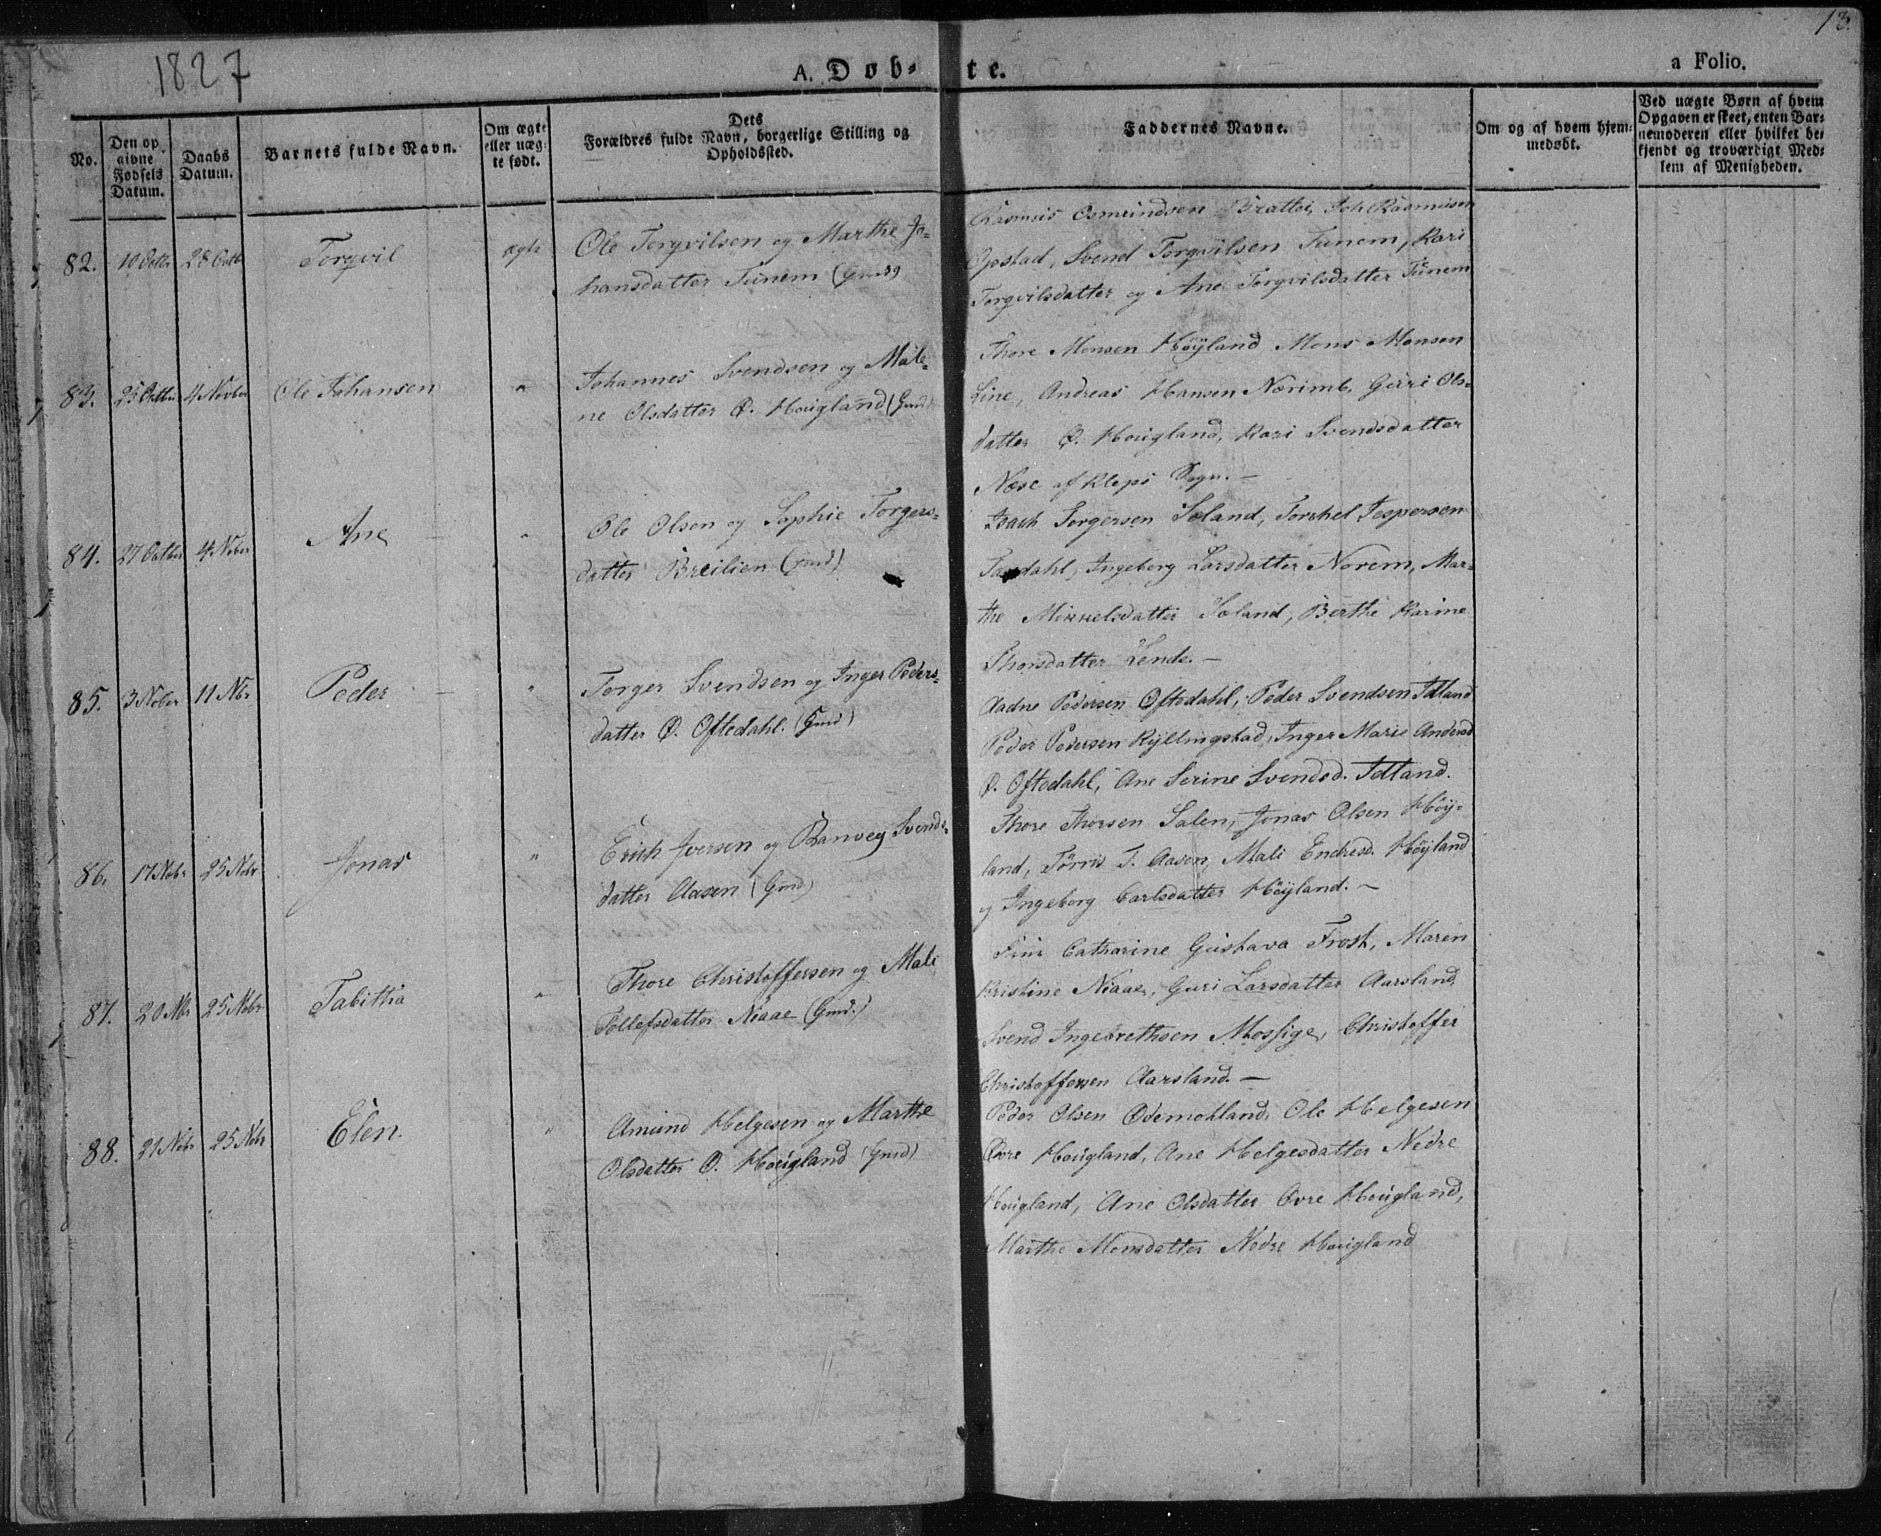 1827
13.
A. Døb-
te.
a Folio.
No.
Den op
givne
Fødsels
Datum.
Daabs
Datum.
Barnets fulde Navn.
Om ægte
eller uæg-
te født.
Dets
Forældres fulde Navn, borgerlige Stilling og
Opholdssted.
Faddernes Navne.
Om og af hvem hjem-
medøbt.
Ved uægte Børn af hvem
Opgaven er skeet, enten Bar-
nemoderen eller hvilket be-
kjendt og troværdigt Med-
lem af Menigheden.
82. 10 Octbr 28 Octb Torqvil ægte
Ole Torqvilsen og Marthe Jo-
hansdatter Tunem (Gmd)
Rasmus Osmundsen Brattei, Joh. Rasmusen
Opstad, Svend Torqvilsen Tunem, Kari
Torqvilsdatter og Ane Torqvilsdatter Tunem
83. 25 Octbr 4 Novbr Ole Johansen "
Johannes Svendsen og Male-
ne Olsdatter Ø. Hougland (Gmd)
Thore Monsen Høÿland Mons Monsen
Line, Andreas Hansen Nærimb, Gurri Ols-
datter Ø. Hougland, Kari Svendsdatter
Næse af Kleps Sogn. —
84. 27 Octbr 4 Nvbr Ane "
Ole Olsen og Sophie Torgers-
datter Breilien (Gmd)
Isach Torgersen Soland, Torchel Jespersen
Ingeborg Larsdatter Norem, Mar-
the Mikkelsdatter Soland, Berthe Karine
Thorsdatter Lende. —
85. 3 Nvbr 11 Nbr Peder "
Torger Svendsen og Inger Peders-
datter Ø. Oftedahl. (Gmd)
Aadne Pedersen Oftedahl, Peder Svendsen Tdland
Peder Pedersen Kÿllingstad, Inger Marie Andersd
Ø. Oftedahl, Ane Serine Svendsd. Tdland.
86. 17 Nobr 25 Nobr Jonas "
Erich Iversen og Ranveg Svends-
datter Aasen (Gmd)
Thore Thorsen Salen, Jonas Olsen Høÿ-
land, Tørris T. Aasen, Mali Endresd. Høÿland
og Ingeborg Carlsdatter Høÿland. —
87. 20 Nbr 25 Nobr Tabithia "
Thore Christoffersen og Mali
Tollefsdatter Niaae (Gmd.)
Catharine Gustava Frost, Maren
Kristine Niaae, Guri Larsdatter Aarsland
Svend Ingebrethsen Mossige, Christoffer
Christoffersen Aarsland. —
88. 21 Nobr 25 Nobr Elen. "
Amund Helgesen og Marthe
Olsdatter Ø. Hougland (Gmd)
Peder Olsen Ødemotland, Ole Helgesen
Øvre Hougland, Ane Helgesdatter Nedre
Hougland, Ane Olsdatter Øvre Hougland,
Marthe Monsdatter Nedre Hougland